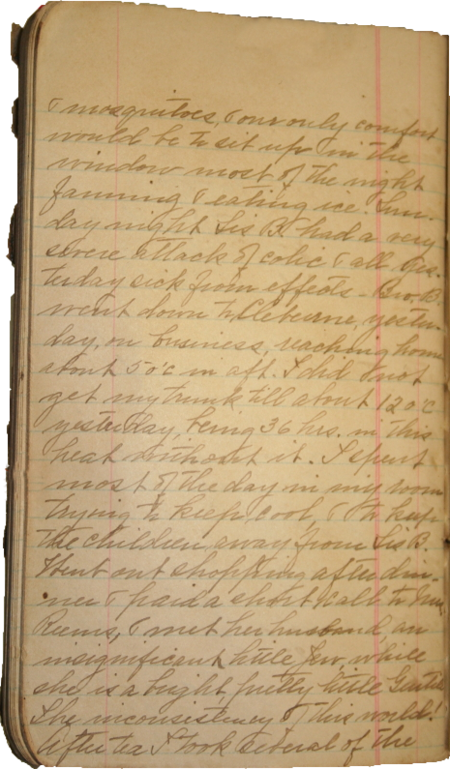 & mosquitoes, & our only comfort
would be to sit up in the
window most of the night
fanning & eating ice. Sun-
day night Sis B. had a very
severe attack of colic & all yes-
terday sick from effects - Bro. B.
went down to Cleburne, yester-
day, on business, reaching home
about 5 o'c in aft. I did not
get my trunk till about 12 o'c
yesterday, being 36 hrs. in this
heat without it. I spent
most of the day in my room
trying to keep cool, & to keep
the children away from Sis B.
Went out shopping after din-
ner & paid a short call to Mrs.
& met her husband, an
insignificant little Jew, while
she is a bright pretty little Gentile
The inconsistency of this world!
After tea I took several of the